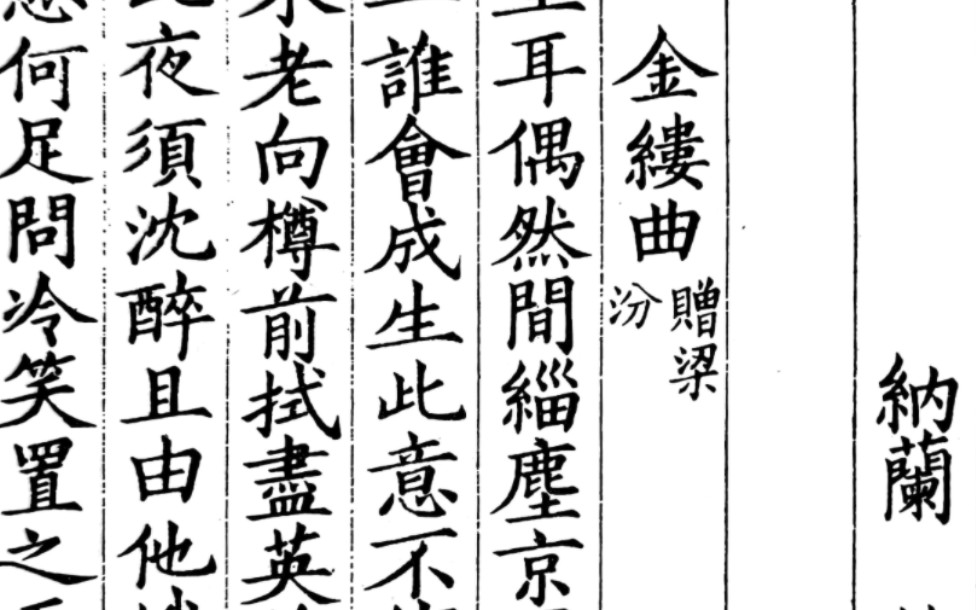 納蘭
金縷曲 贈梁汾
耳偶然間緇塵京
誰會成生此意不
老向樽前拭盡英
夜須沈醉且由他
何足問冷笑置之